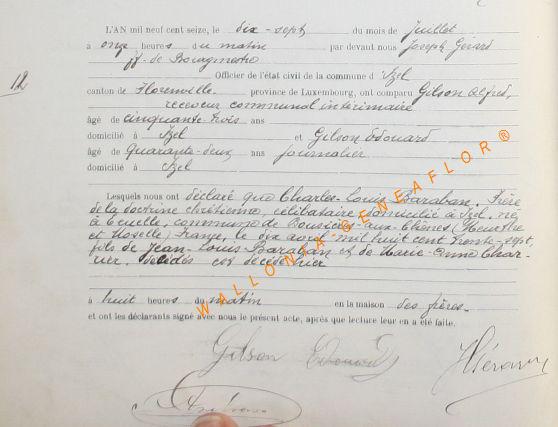 L'AN mil neuf cent seize, le dix-sept du mois de Juillet
à onze heures du matin par devant nous Joseph Gérard
ff. de Bourgmestre
Officier de l'état civil de la commune d'Izel
12
canton de Florenville province de Luxembourg, ont comparu Gilson Alfred,
receveur communal intérimaire
âgé de cinquante-trois ans
domicilié à Izel et Gilson Edouard
âgé de quarante-deux ans journalier
domicilié à Izel
Lesquels nous ont déclaré que Charles-Louis Baraban, Frère
de la doctrine chrétienne, célibataire domicilié à Izel, né
à Ecuelle, commune de Bouxières-aux-Chênes (Meurthe
et Moselle) France, le dix août mil huit cent trente-sept,
fils de Jean-Louis Baraban et de Marie-Anne Char-
rier, décédés est décédé hier
à huit heures du matin en la maison des frères.
et ont les déclarants signé avec nous le présent acte, après que lecture leur en a été faite.
Gilson Edouard
WALLONIA-GENEAFLOR®